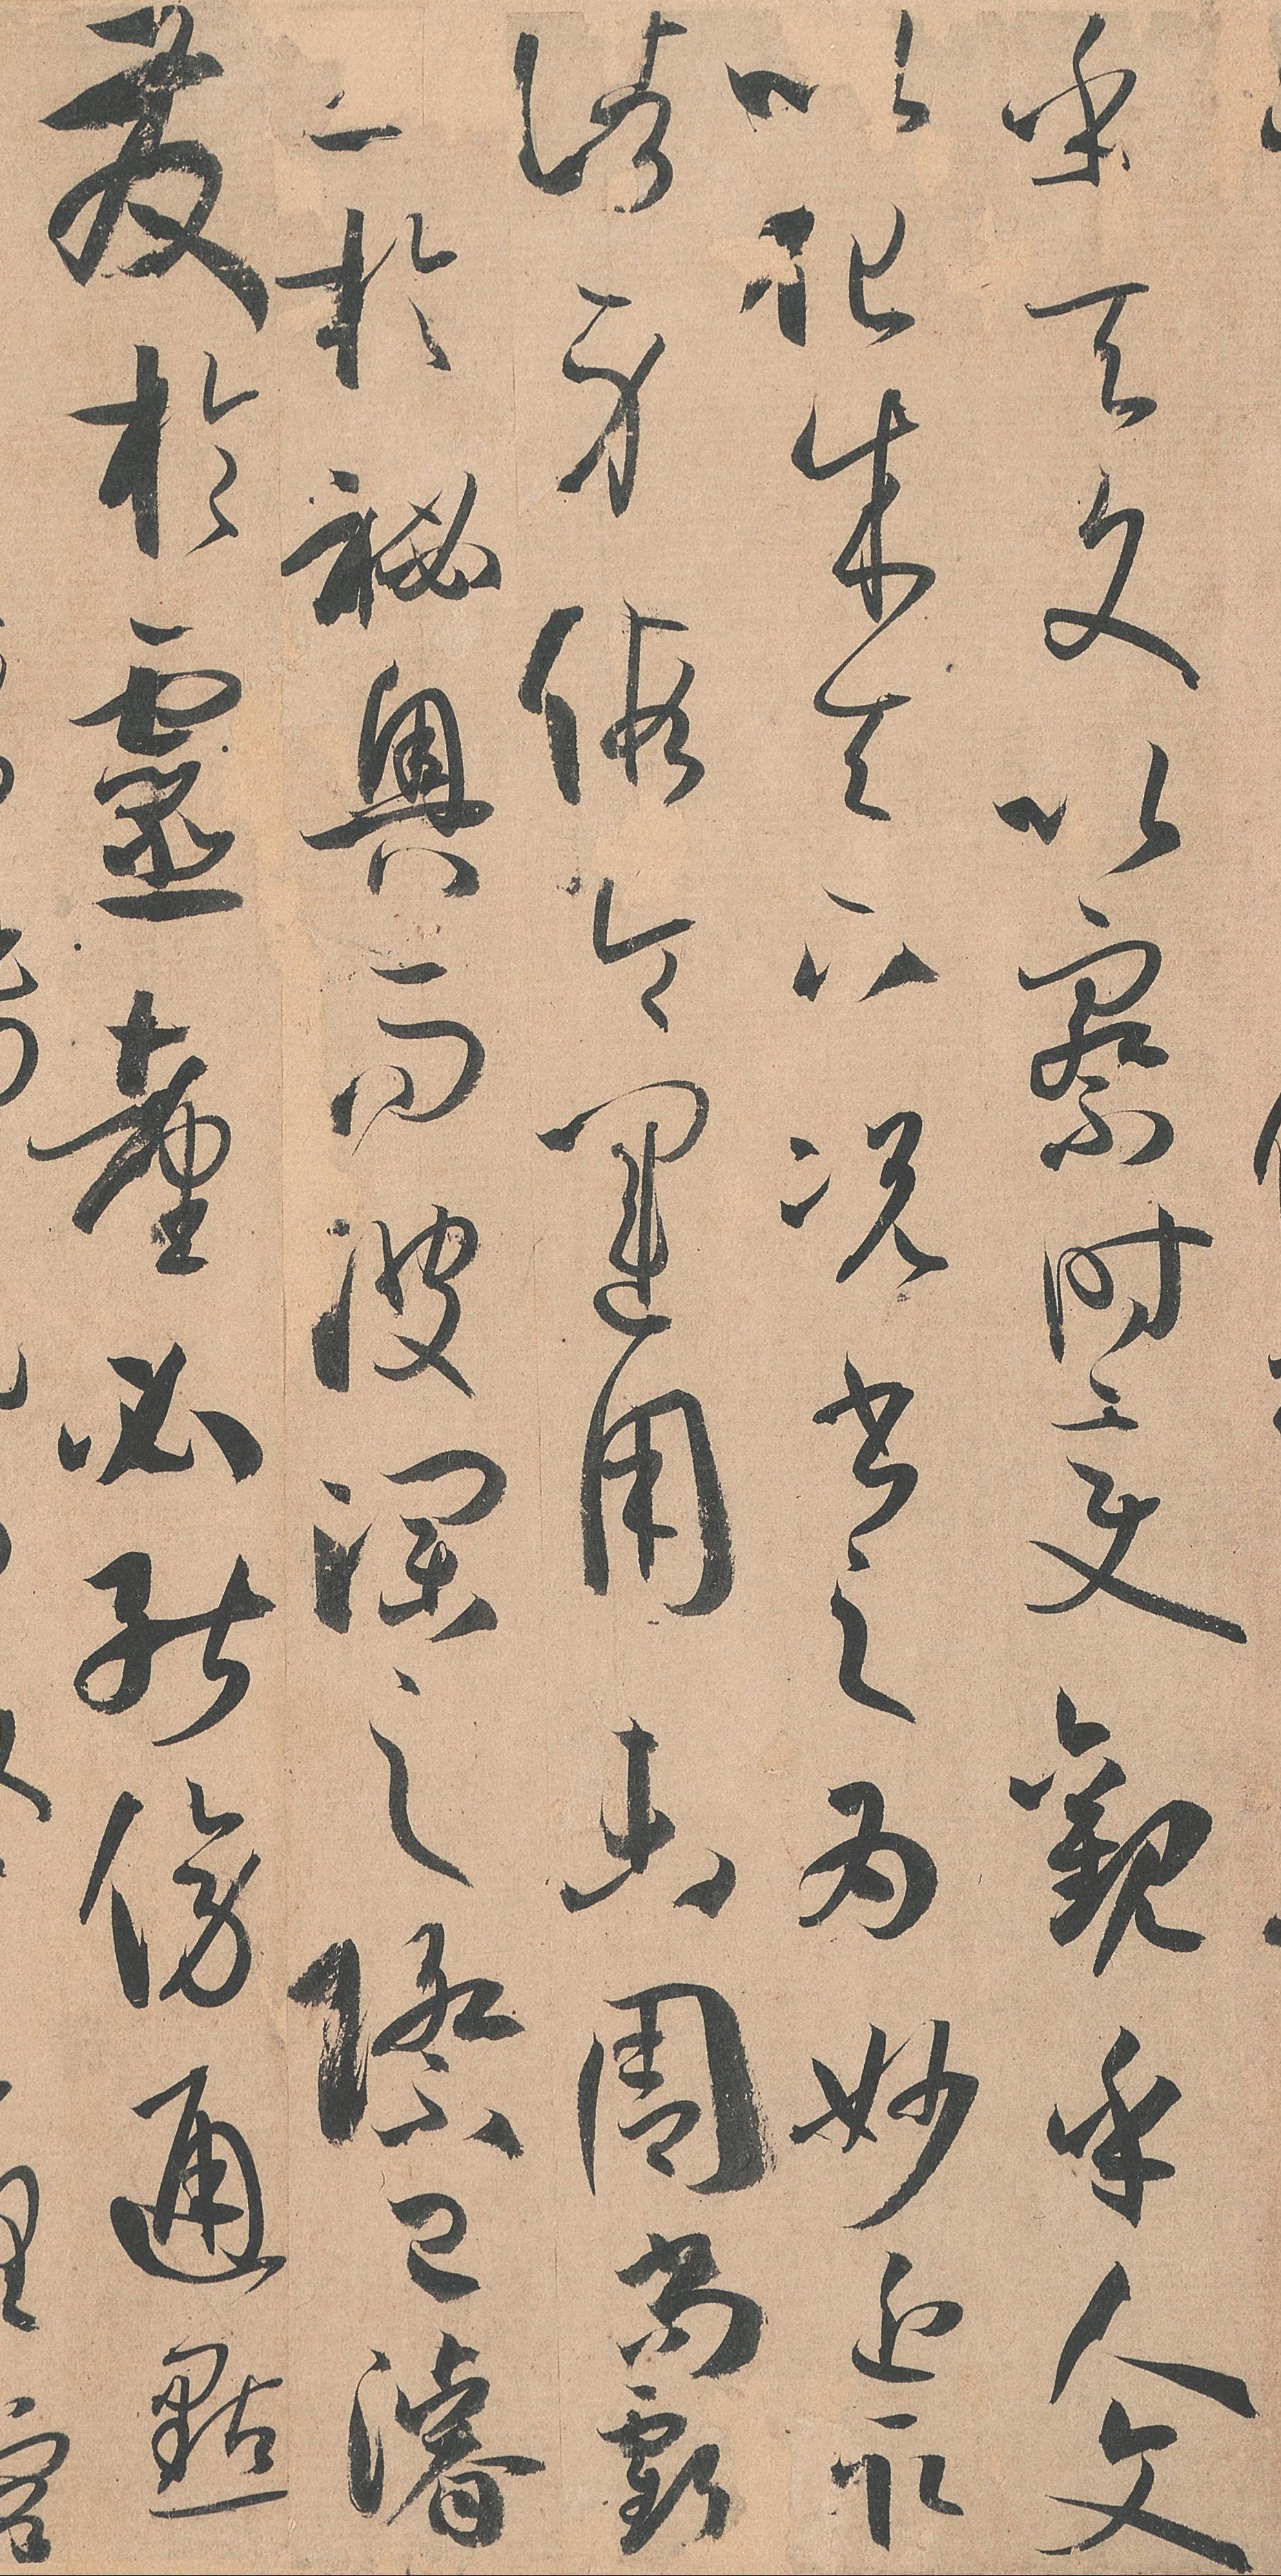 乎天文以察時變觀乎人文
以化成天下況書之為妙近取
諸身假令運用未周尚虧
工於秘奧而波瀾之際已濬
發於靈臺必能傍通點